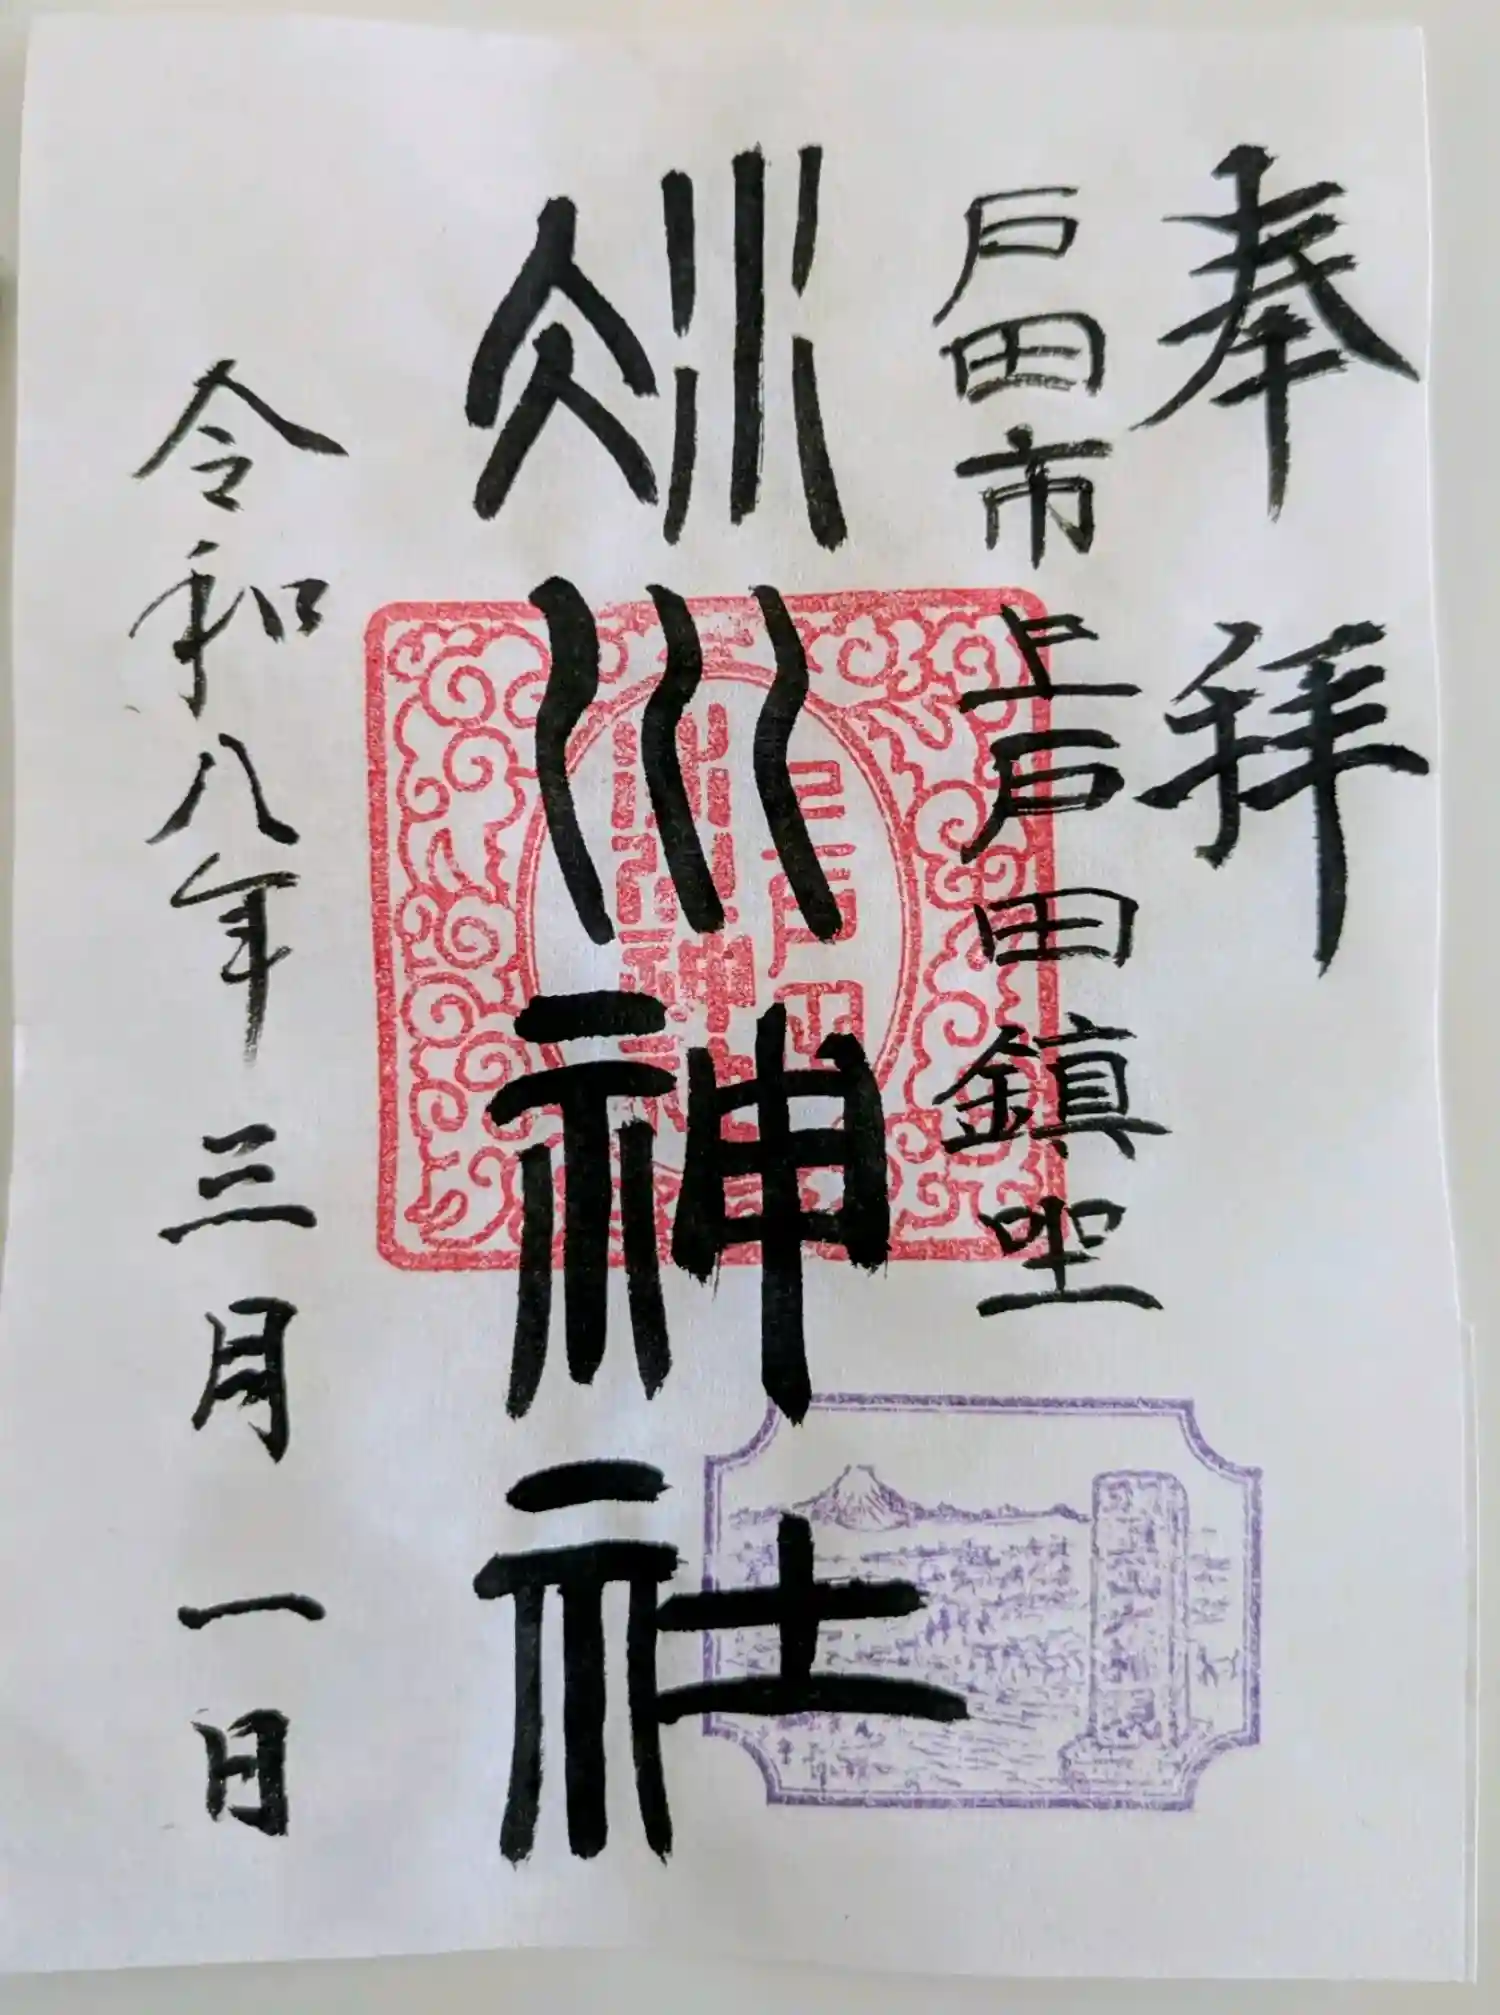 奉拝
戸田市上戸田鎮坐
冰川神社
令和八年三月一日